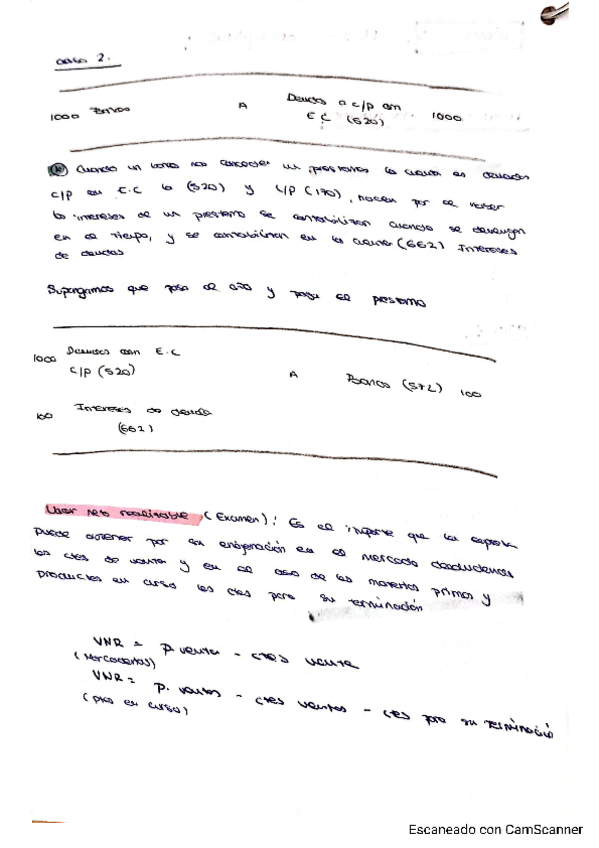 caso 2.
1000 Bancos A Deudas a c/p con E.C (520) 1000
Cuando un banco nos conceder un prestamos la cuenta es deudas
c/p en E.C la (520) y L/P (170), nacen por el
los intereses de un prestamo se contabilizan cuando se devengan
en el tiempo, y se contabilizan en la cuenta (662) Intereses
de deudas
Supongamos que pasa el año y paga el prestamo
1000 Deudas con E.C
c/p (520) A Banco (572) 100
100 Intereses de deuda
(662)
Valor neto realizable (Examen): Es el importe que la empresa
puede obtener por su enajenación en el mercado deduciendo
los ctes de venta y en el caso de las materias primas y
productos en curso los ctes para su terminación
VNR = P. venta - ctes venta
(Mercaderías)
VNR = P. ventas - ctes ventas - ctes para su terminació
(pto en curso)
Escaneado con CamScanner